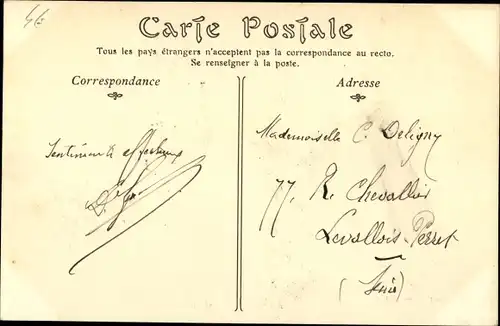 Carte Postale
Tous les pays étrangers n'acceptent pas la correspondance au recto.
Se renseigner à la poste.
Correspondance
Adresse
Sentiments affectueux
Mademoiselle C. Deligny
77, R. Chevallier
Levallois-Perret
(Seine)